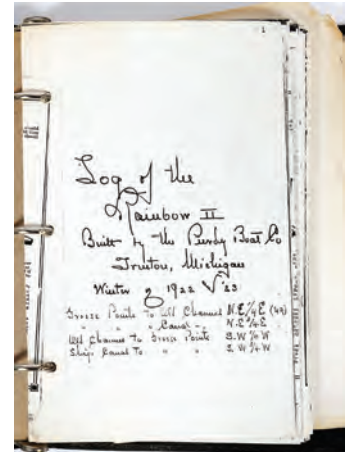 1
Log of the
Rainbow II
Built by the Purdy Boat Co
Trenton, Michigan
Winter of 1922 & '23
Grosse Pointe To Channel N.E. 1/4 E
" " " Canal N.E. 3/4 E
Channel To Grosse Pointe S.W. 1/4 W
Ship Canal To " " S.W. 3/4 W